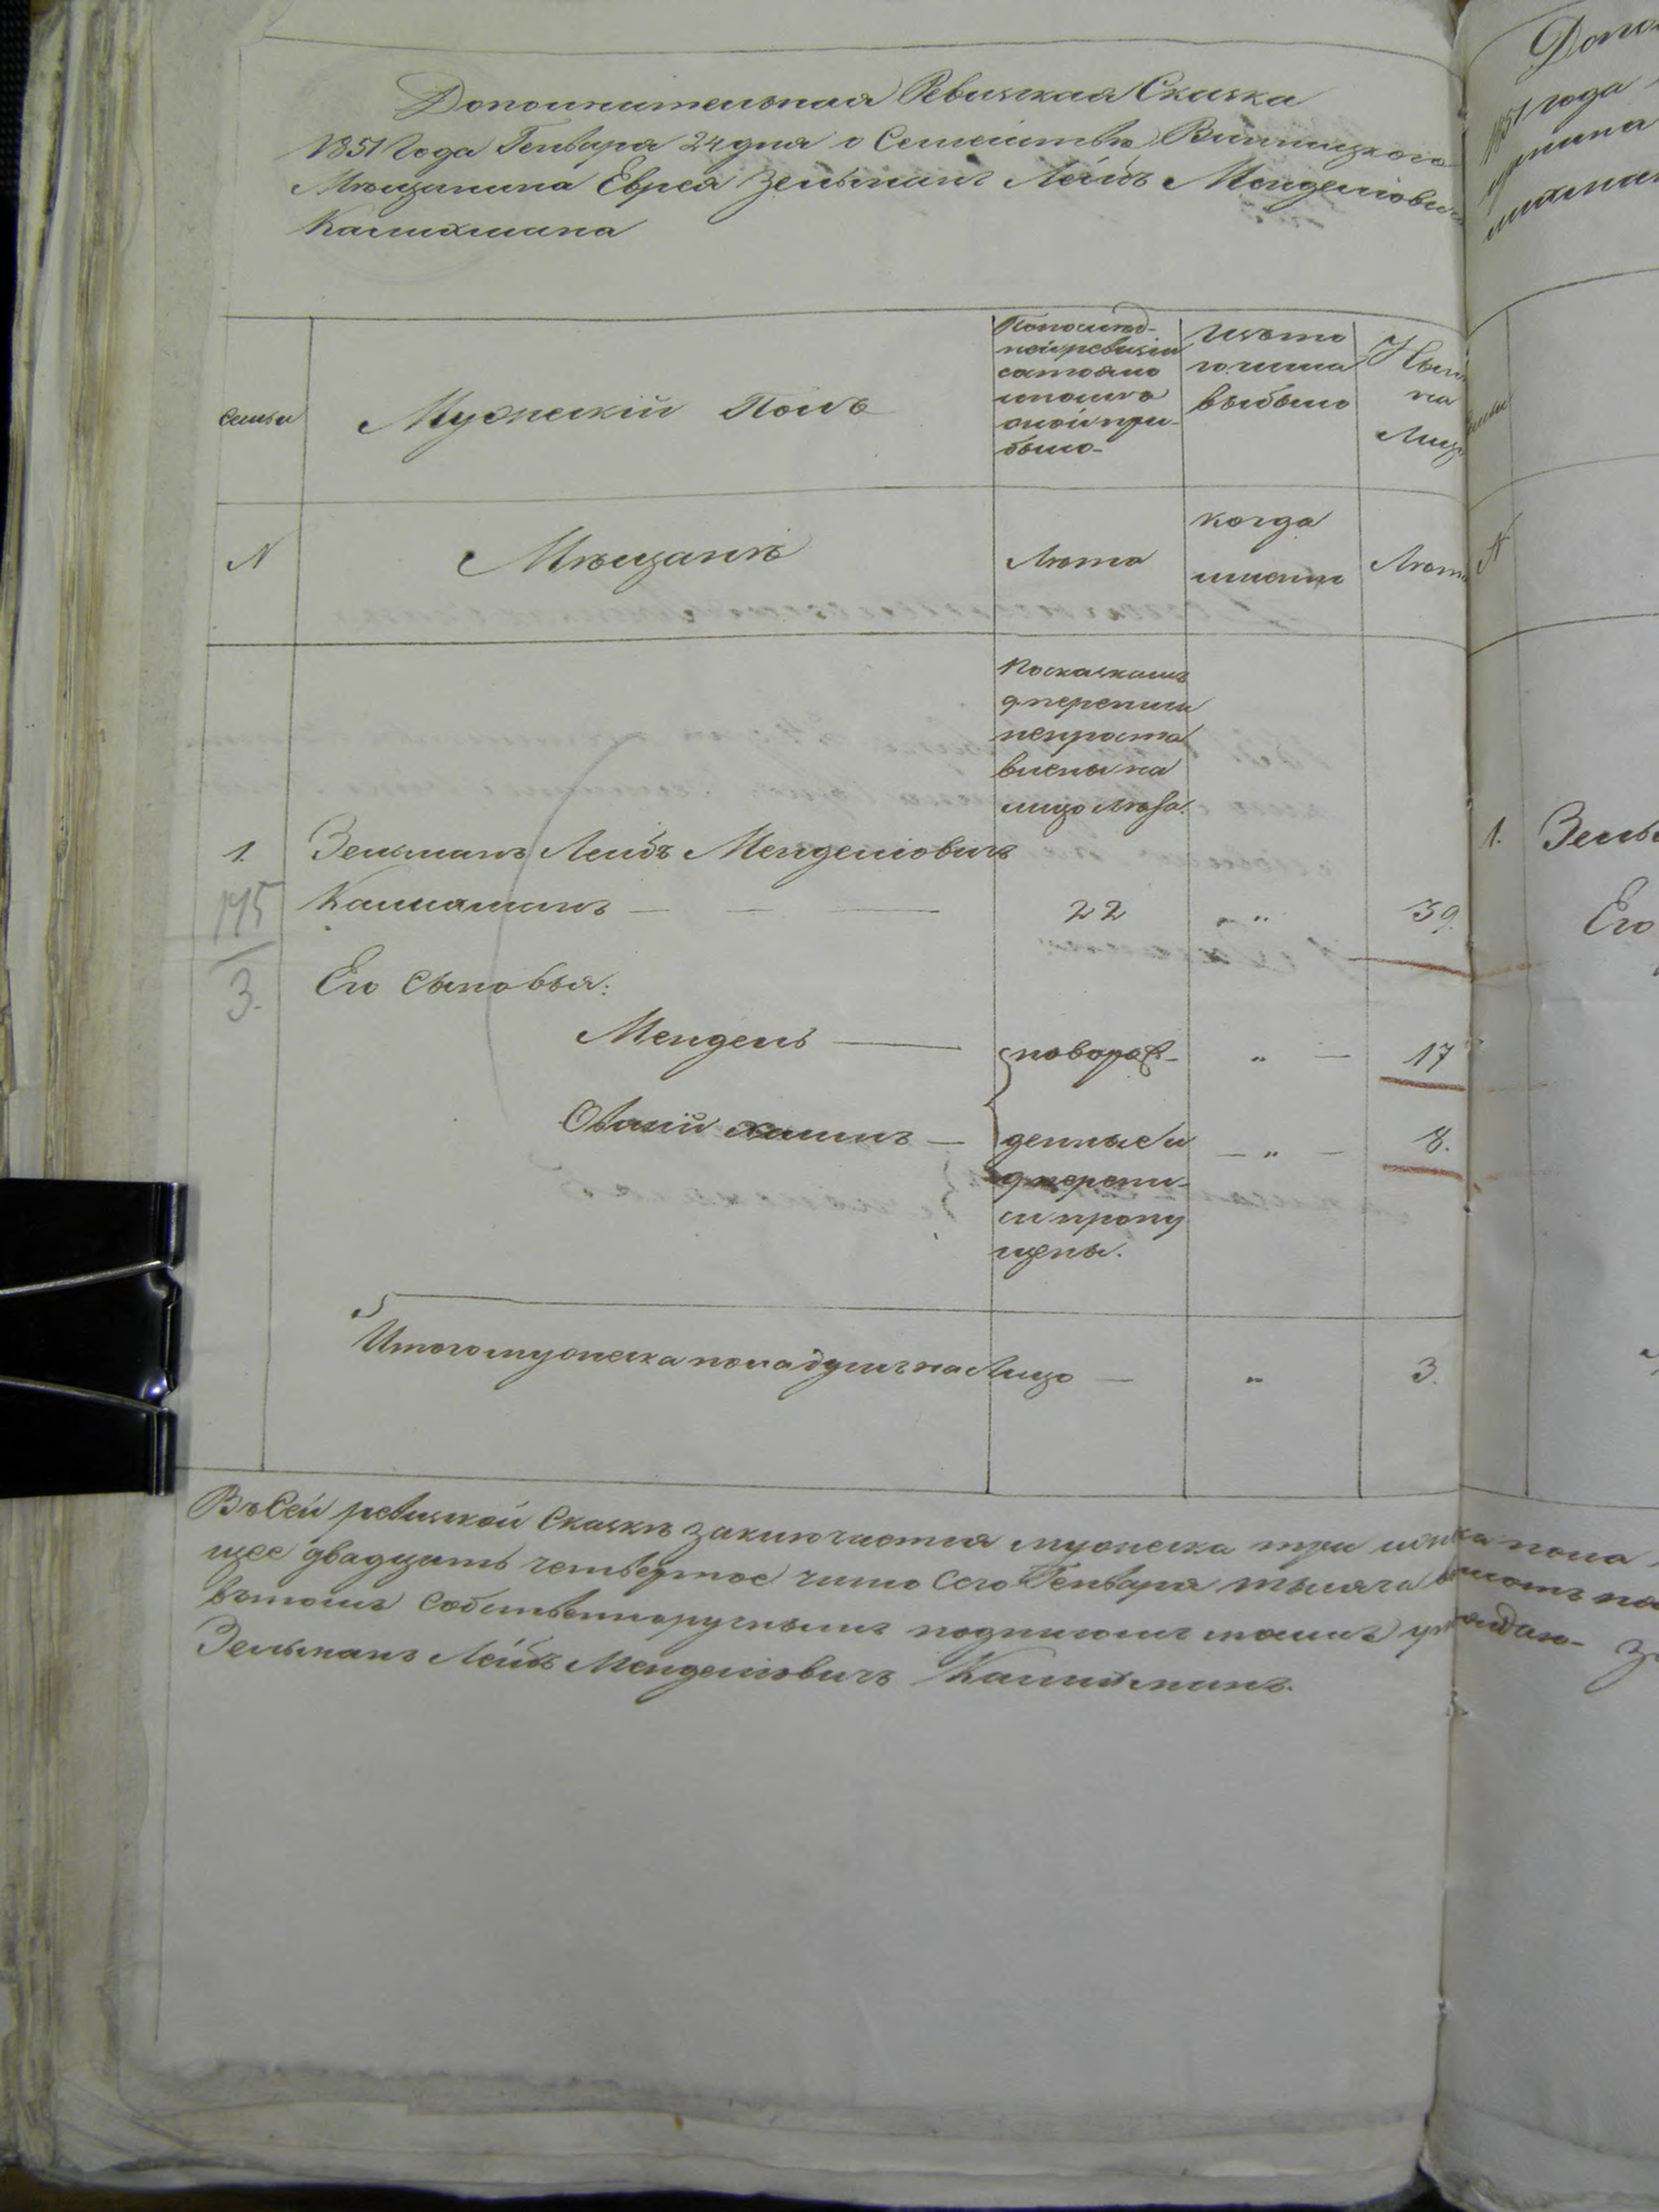 Дополнительная Ревизская Сказка
1851 года Генваря 24 дня о Семействе Винницкого
Мѣщанина Еврея Зельмана Лейбъ Менделіови
семьи
Мужескій Полъ
По послѣд-
ней ревизіи
состояло
и после
оной при-
было-
Изъ того
числа
выбыло
Нынѣ
на
Лицо
N
Мѣщанъ
Лѣта
когда
именно
Лѣта
По сказкамъ
9 переписи
непроста
влены на
лицо лѣта.
1. Зельманъ Лейбъ Менделіовичъ
22 „ 39.
175
3.
Его Сыновья:
Мендель — новорож- „ — 17
Овший — денные и — „ — 8.
9 перепи-
си пропу
щены.
Итого мужеска пола душъ на Лицо — „ 3.
Въ Сей ревизкой Сказкѣ заключается мужеска три
щее двадцать четвертое число Сего Генваря тысяча
въ томъ Собственноручнымъ подписомъ моимъ
Зельманъ Лейбъ Менделіовичъ
Допо
1851 года
семьи
N
1. Зельм
Его
ка пола